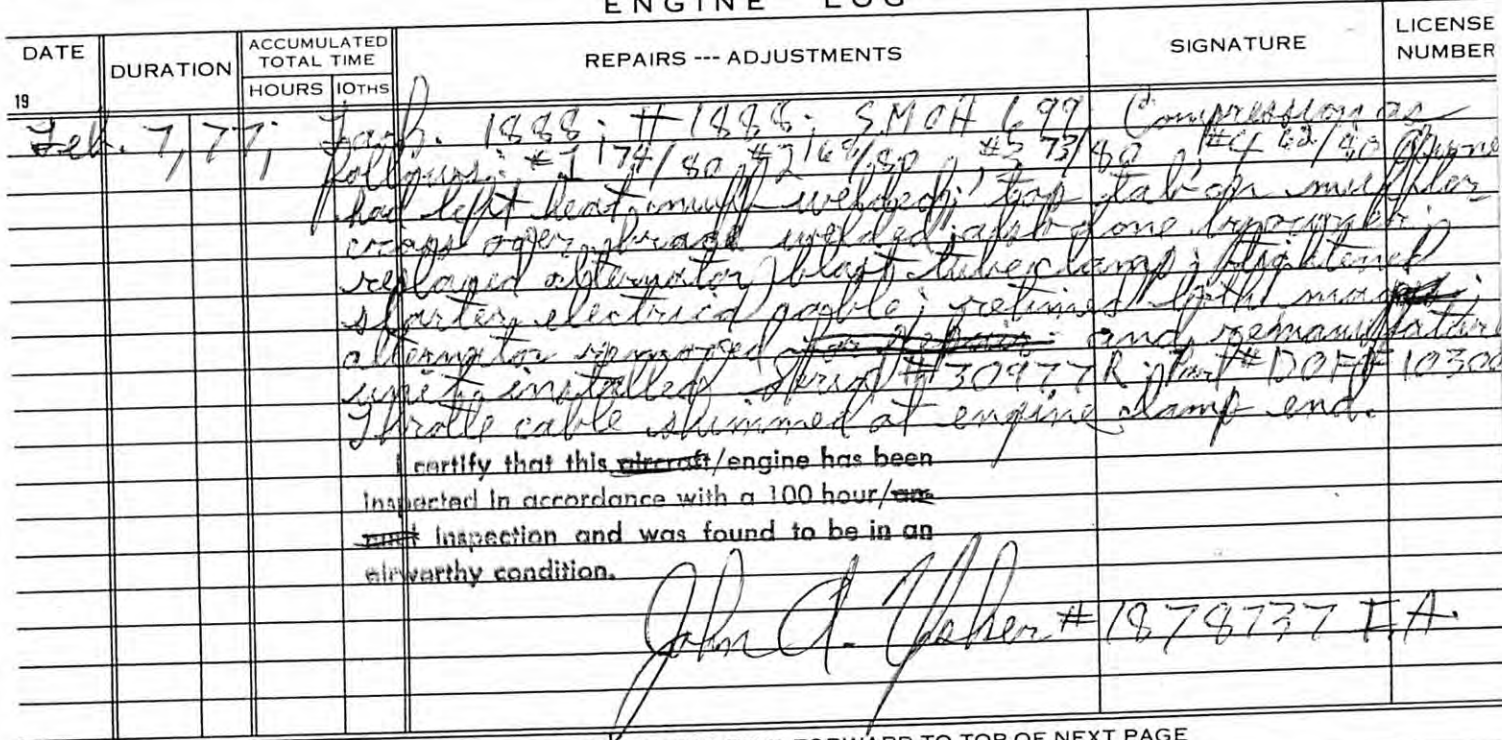 ENGINE LOG
DATE
DURATION
ACCUMULATED TOTAL TIME
HOURS 10THS
REPAIRS --- ADJUSTMENTS
SIGNATURE
LICENSE NUMBER
19
Feb. 7, 77; Tach. 1888; TT 1888; SMOH 699 Compression as
follows: #1 74/80, #2 68/80, #3 73/80, #4 62/80
had left heat muff welded; top tab on muffler
cross over welded; also done
replaced alternator blast tube clamp; tightened
starter electrical cable; retimed both mags;
alternator removed and remanufactured
unit installed Serial #30977R; Part #DOFF10300
Throttle cable shimmed at engine clamp end.
I certify that this aircraft/engine has been
inspected in accordance with a 100 hour/an-
nual inspection and was found to be in an
airworthy condition.
John A. #1878737
FORWARD TO TOP OF NEXT PAGE